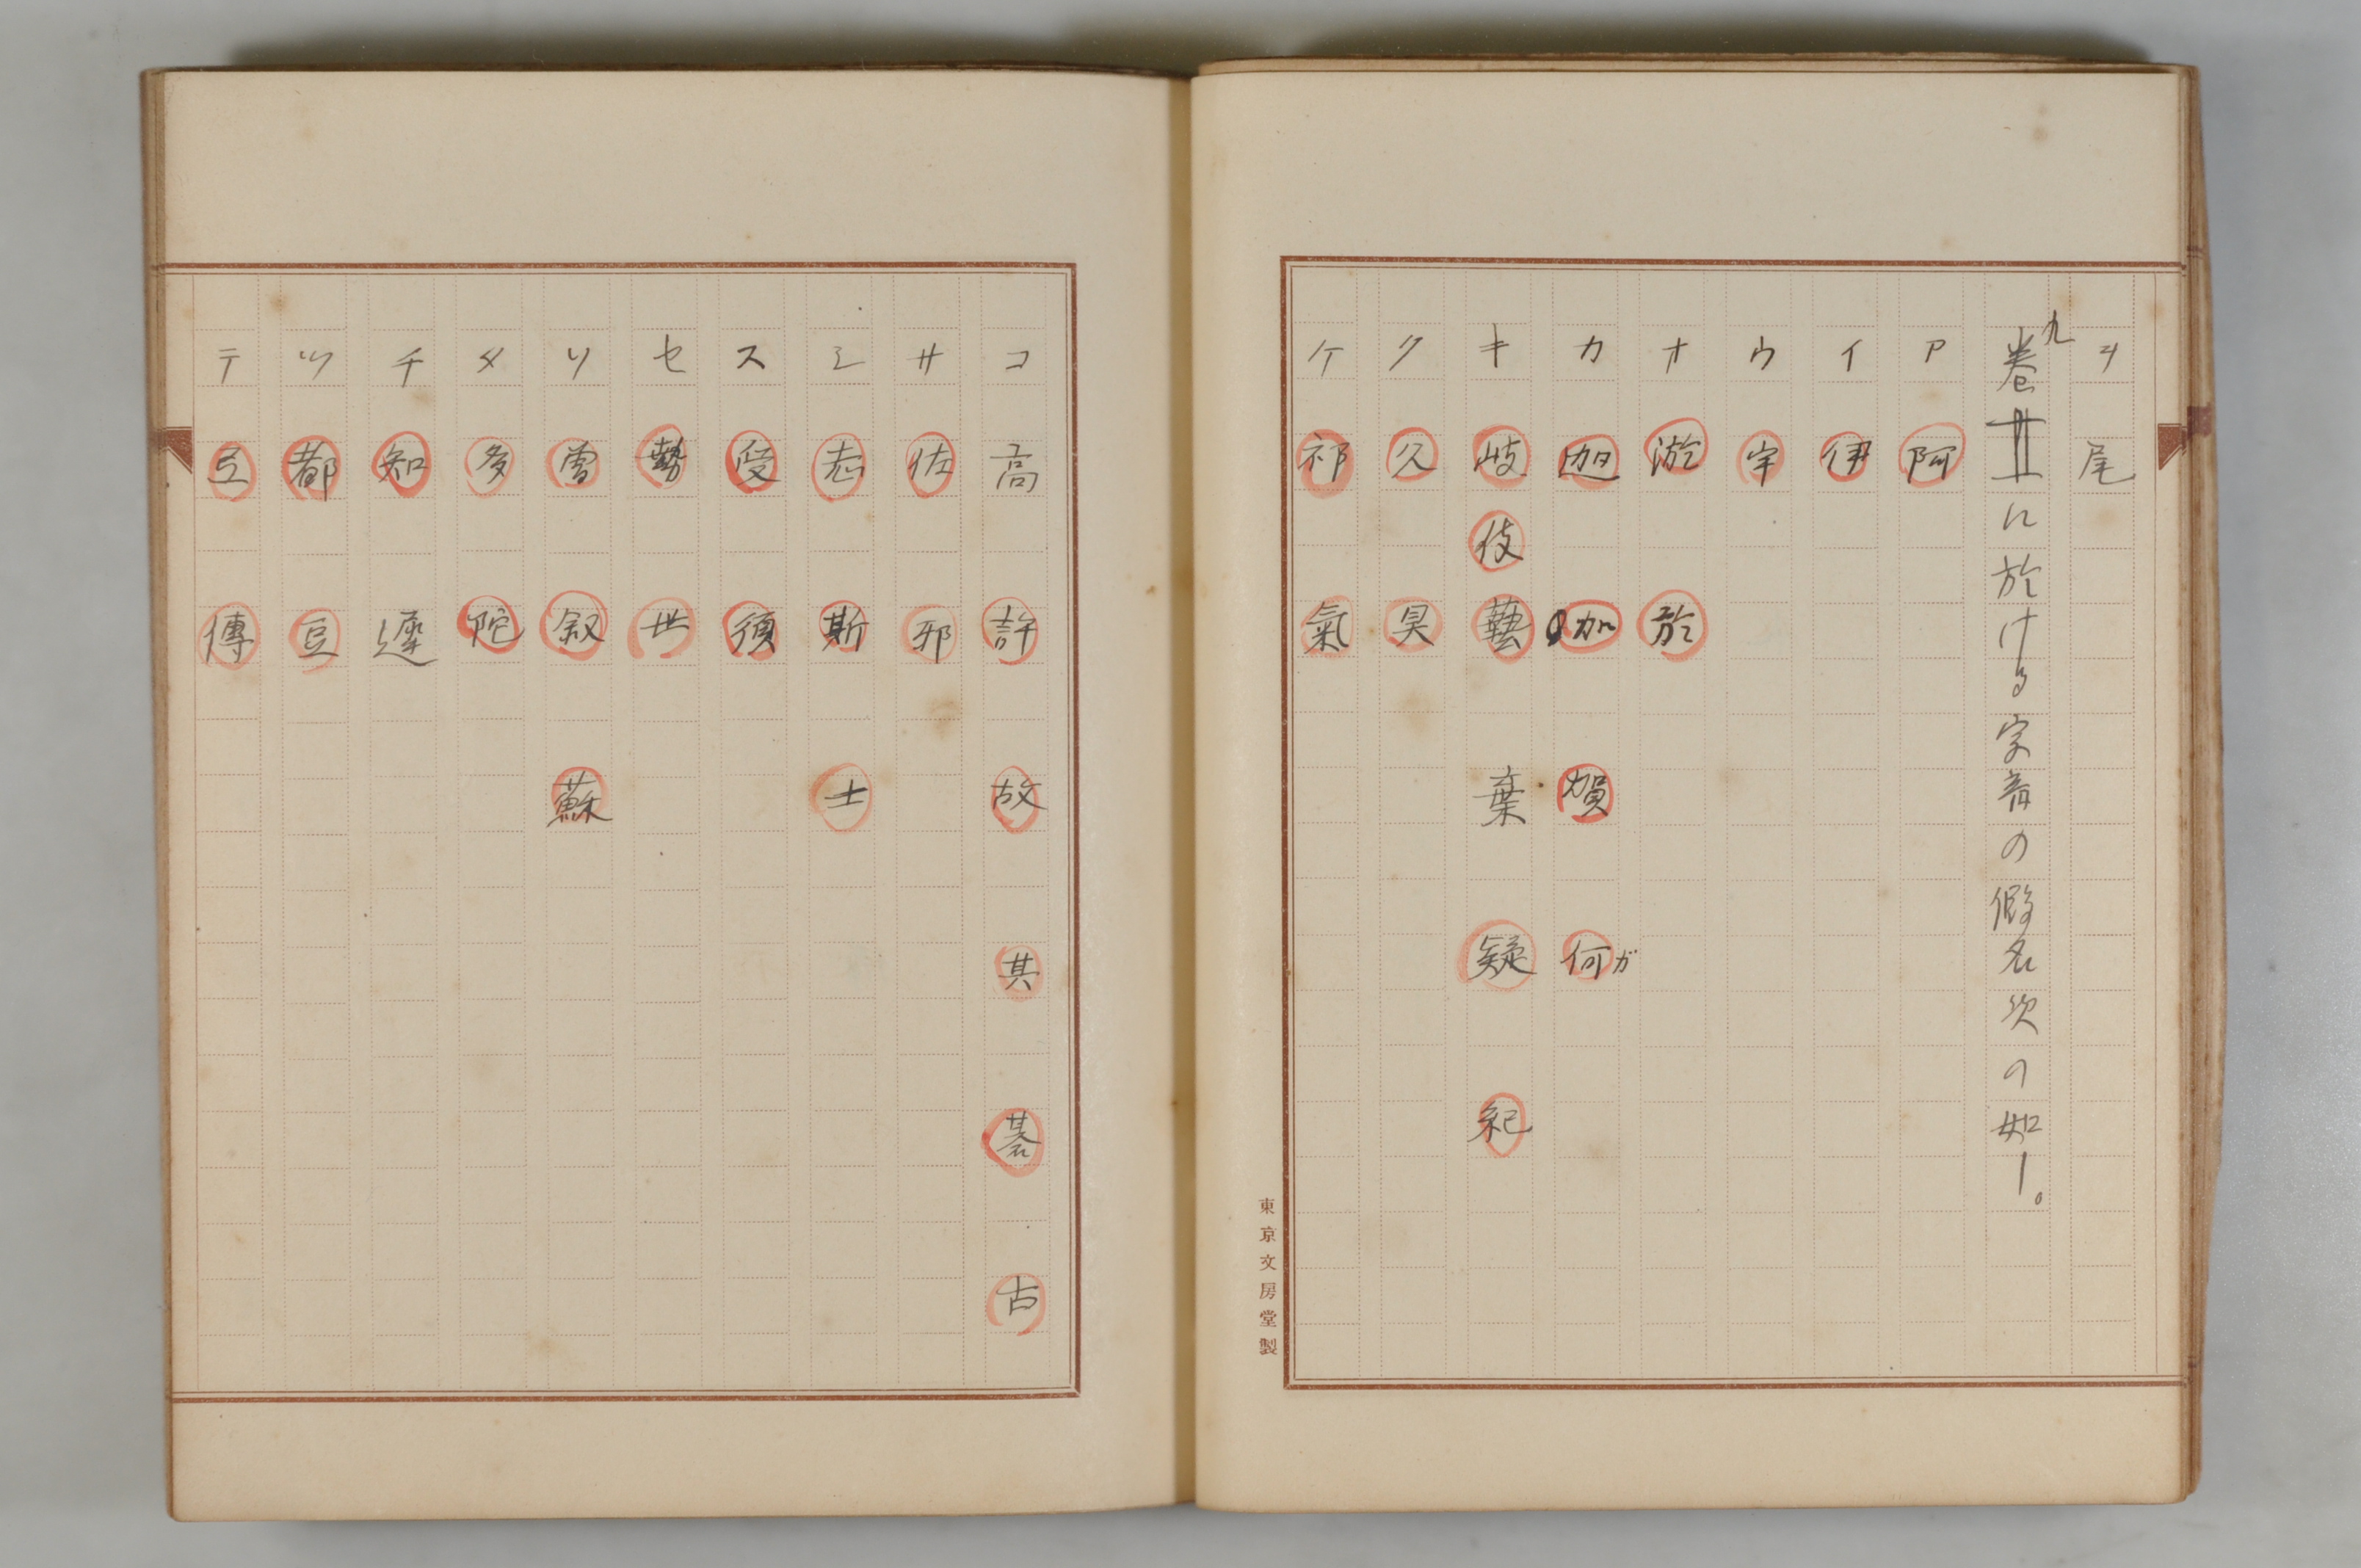 ヲ 尾
九
卷に於ける字音の假名次の如し。
ア 阿
イ 伊
ウ 宇
オ 淤 於
カ 迦 加 賀 何ガ
キ 岐 伎 藝 棄 疑 紀
ク 久 具
ケ 祁 氣
東京文房堂製
コ 高 許 故 其 碁 古
サ 佐 邪
シ 志 斯 士
ス 受 須
セ 勢 世
ソ 曾 叙 蘇
タ 多 陀
チ 知 遲
ツ 都 豆
テ 弖 傳